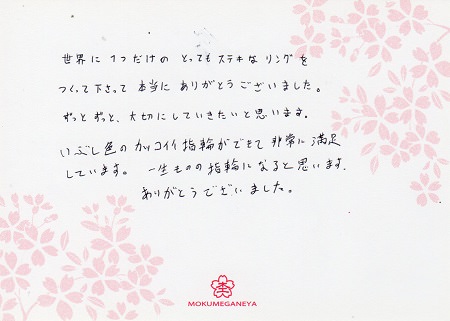 世界に1つだけの とっても ステキな リングを
つくって下さって 本当に ありがとうございました。
ずっと ずっと、大切にしていきたいと思います。
いぶし色の カッコイイ 指輪ができて 非常に 満足
しています。 一生ものの指輪になると思います。
ありがとうございました。
MOKUMEGANEYA